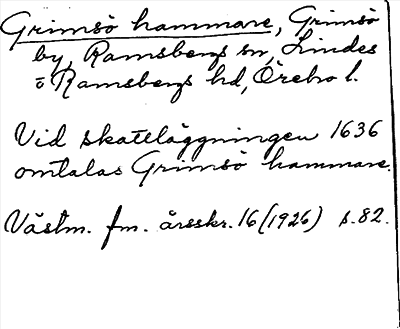 Grimsö hammare, Grimsö
by, Ramsbergs sn, Lindes
o Ramsbergs hd, Örebro l.
Vid skatteläggningen 1636
omtalas Grimsö hammare.
Västm. fm. årsskr. 16 (1926) s. 82.